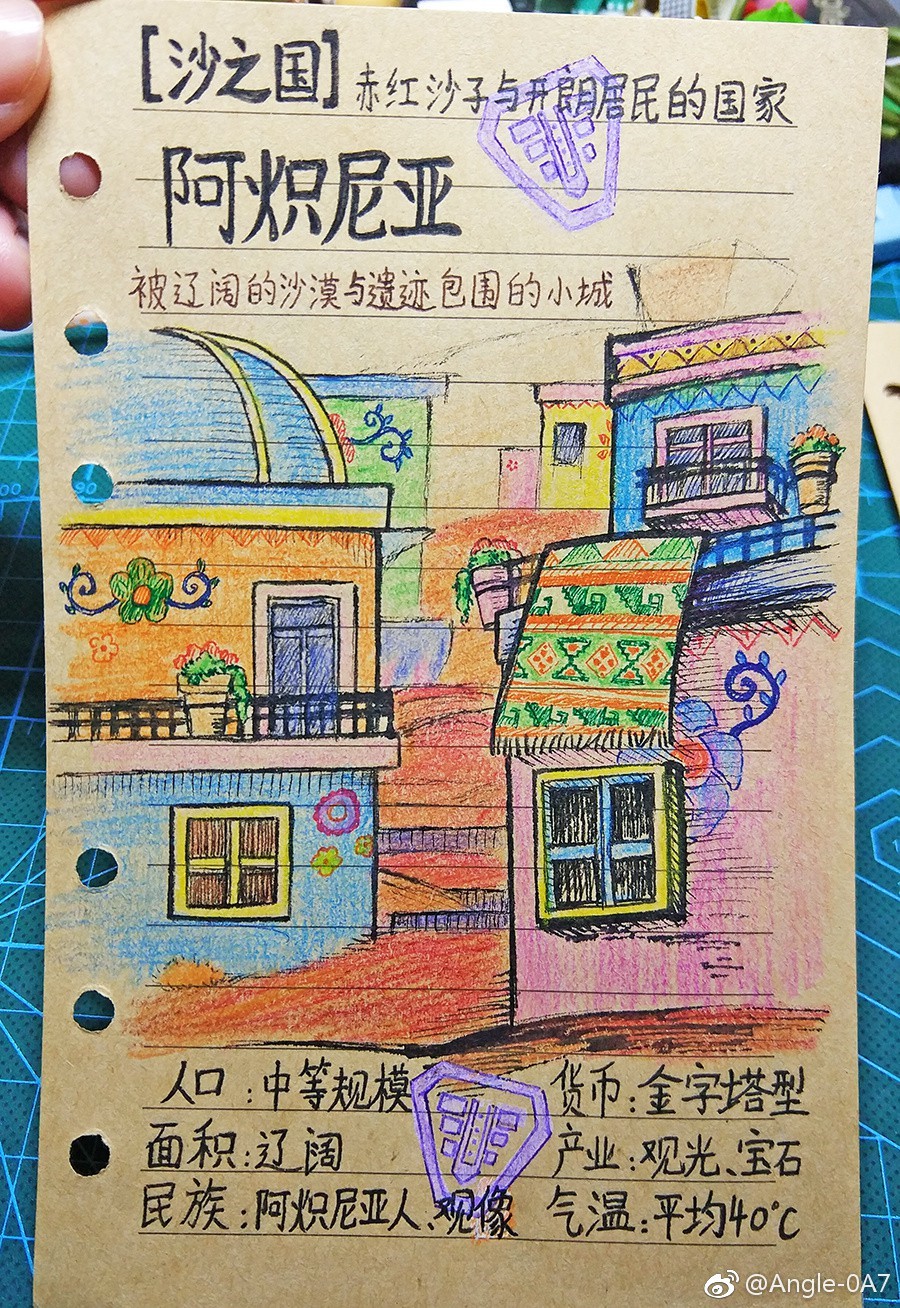 [沙之国] 赤红沙子与开朗居民的国家
阿炽尼亚
被辽阔的沙漠与遗迹包围的小城
人口:中等规模 货币:金字塔型
面积:辽阔 产业:观光、宝石
民族:阿炽尼亚人、观像 气温:平均40℃
@Angle-0A7